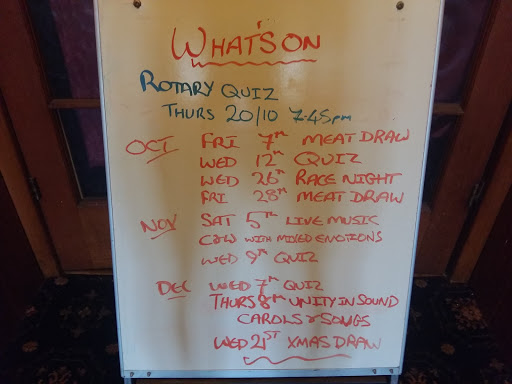 WHAT'S ON
ROTARY QUIZ
THURS 20/10 7.45pm
OCT FRI 7TH MEAT DRAW
WED 12TH QUIZ
WED 26TH RACE NIGHT
FRI 28TH MEAT DRAW
NOV SAT 5TH LIVE MUSIC
C&W WITH MIXED EMOTIONS
WED 9TH QUIZ
DEC WED 7TH QUIZ
THURS 8TH UNITY IN SOUND
CAROLS & SONGS
WED 21ST XMAS DRAW